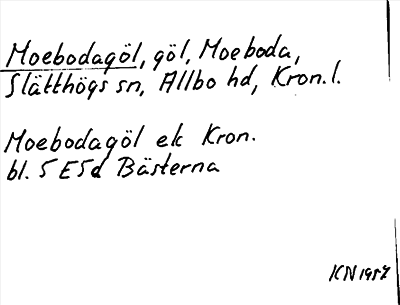 Moebodagöl, göl, Moeboda,
Slätthögs sn, Allbo hd, Kron. l.
Moebodagöl ek Kron.
bl. 5 E5d Bästerna
KN 1957